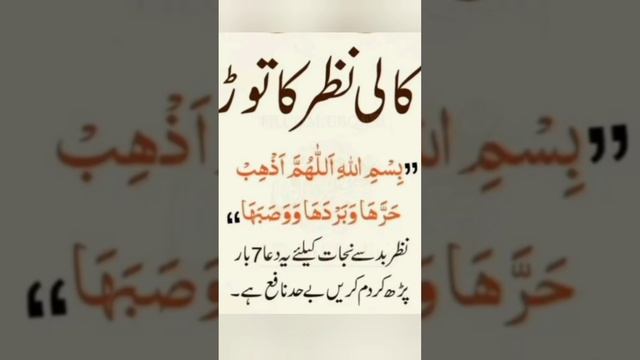 کالی نظر کا توڑ
”بِسْمِ اللهِ اَللّٰهُمَّ اَذْهِبْ
حَرَّهَا وَبَرْدَهَا وَوَصَبَهَا“
نظر بد سے نجات کیلئے یہ دعا 7 بار
پڑھ کر دم کریں بے حد نافع ہے۔